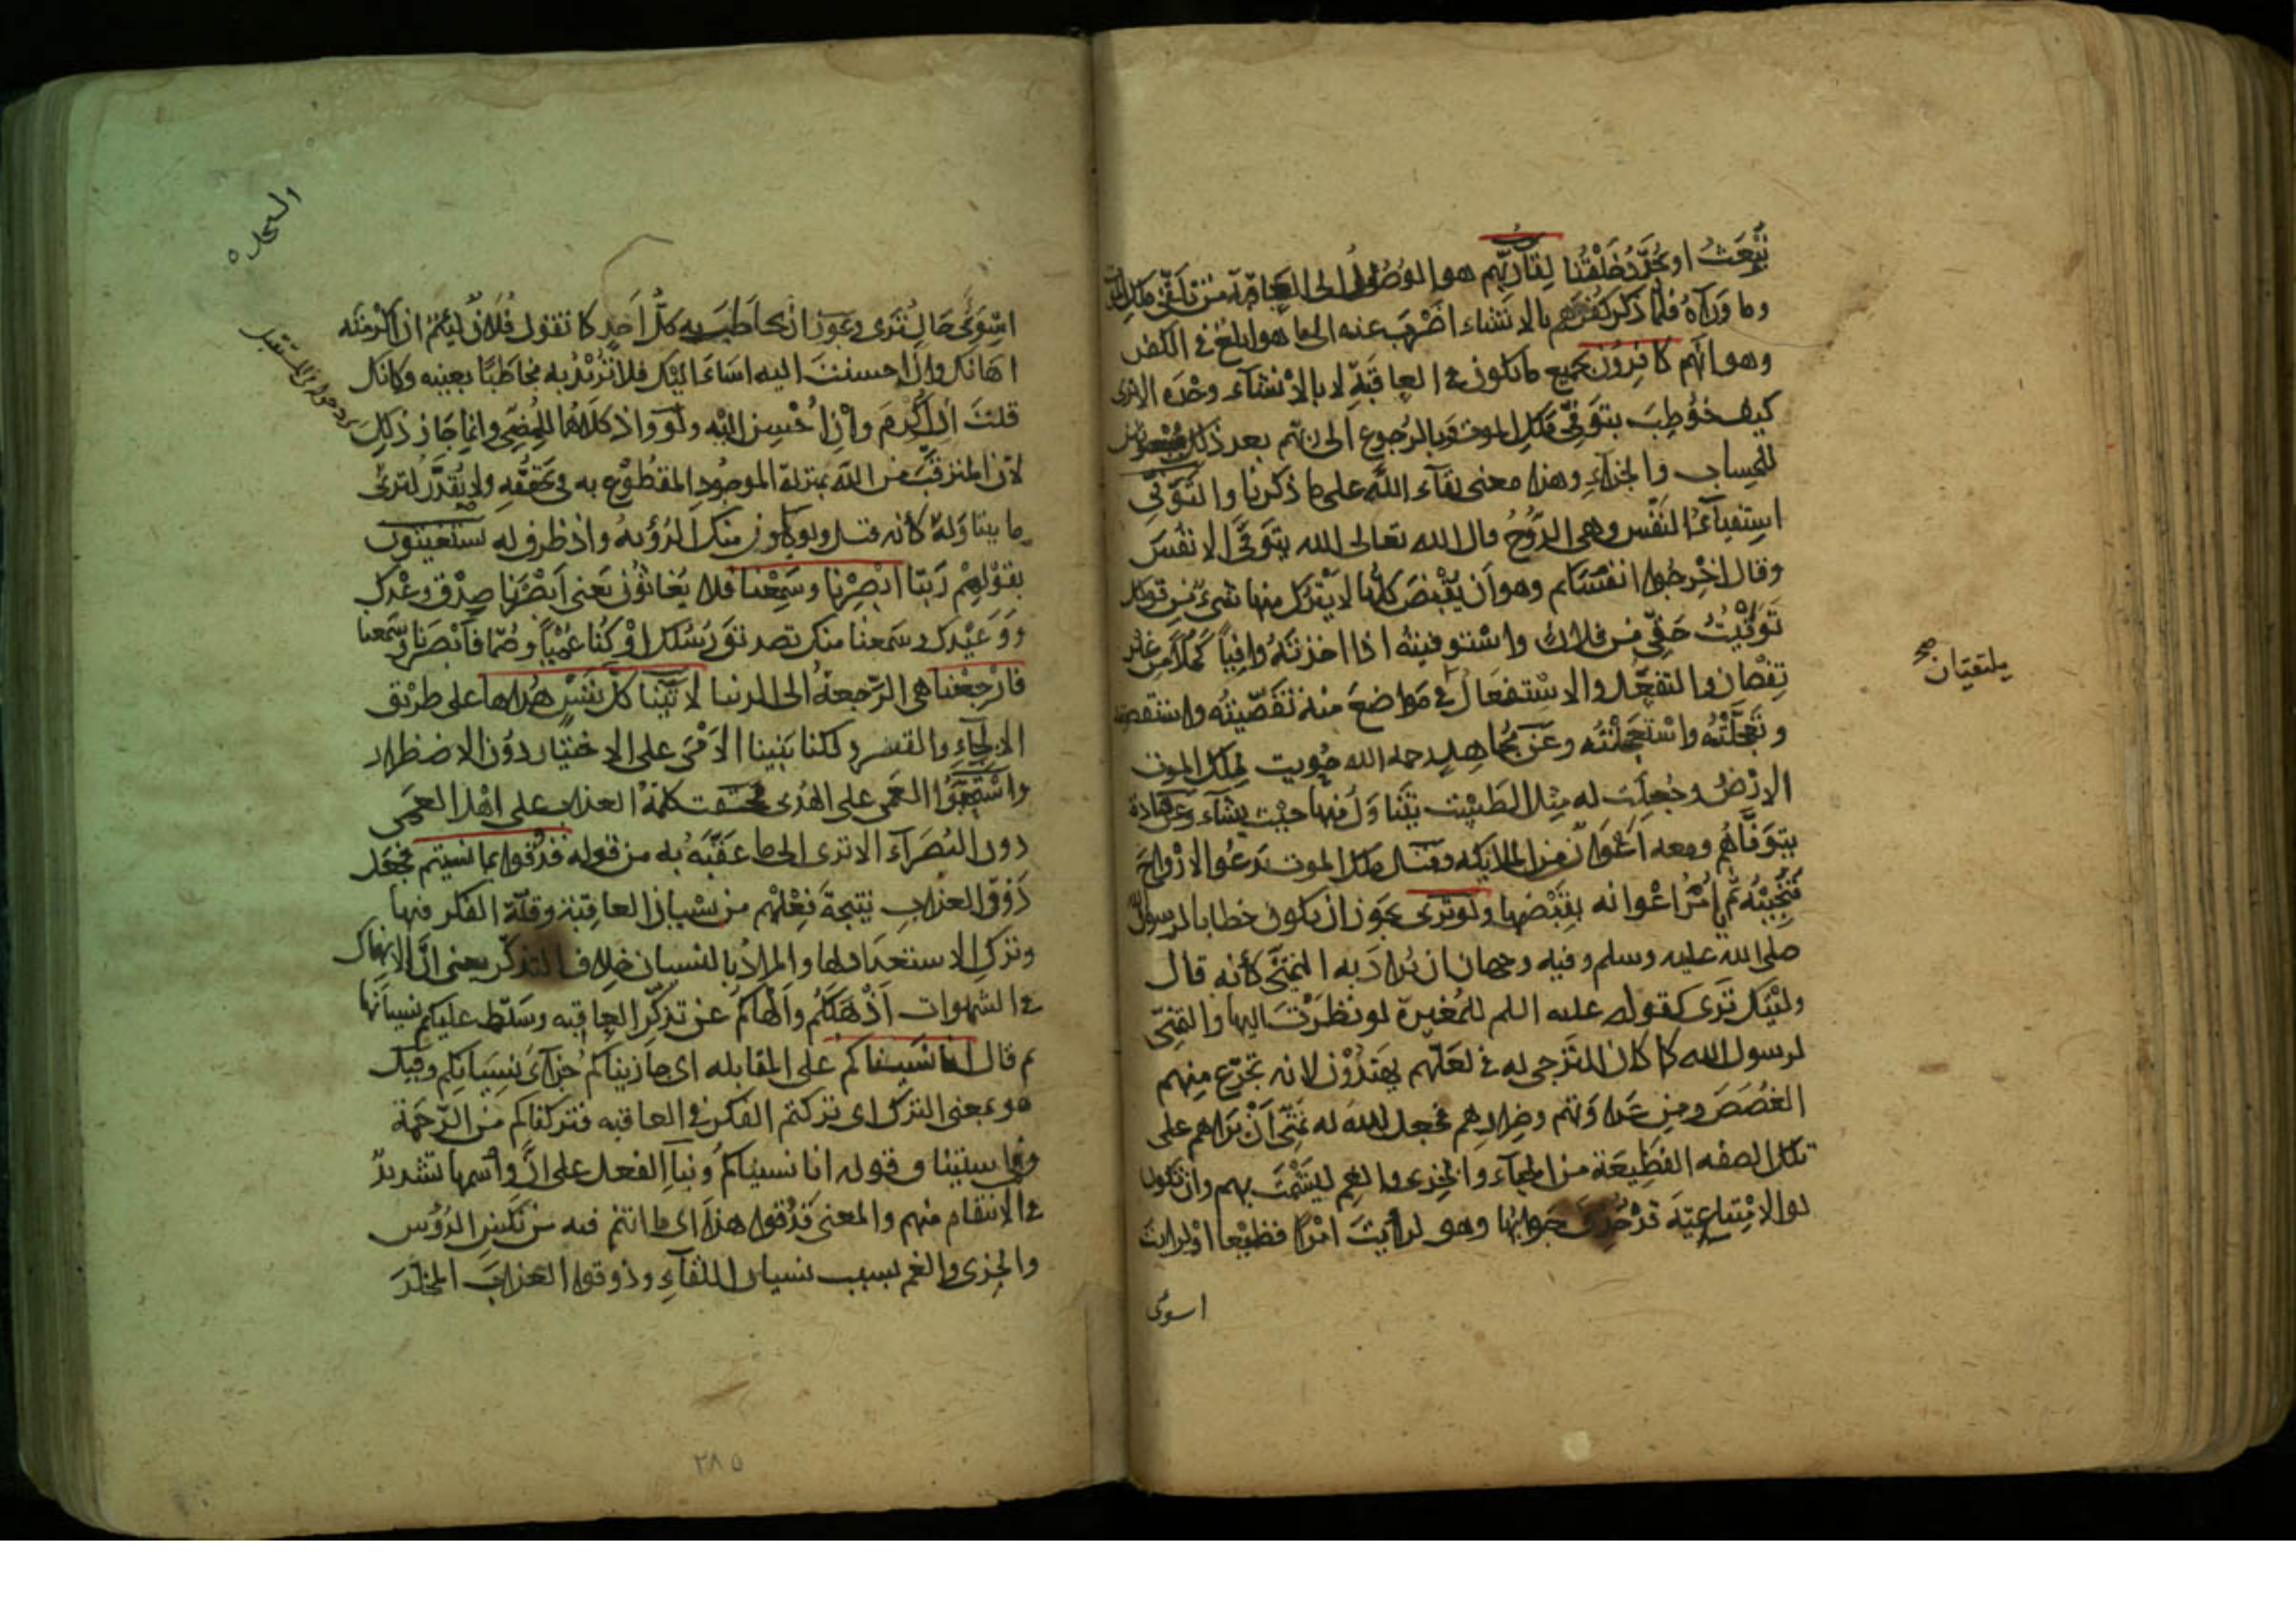 نُبْعَثُ او يُجَدَّدُ خَلْقُنا لِقَاءُ رَبِّهم هو الوُصُولُ الى العاقبة من تلقى ملك الموت
وما ورآه فلمّا ذكر كفرهم بالانشاء اضْرَب عنه الى ما هو ابلغ فى الكفر
وهو انهم كافِرُون بجميع ما يكون فى العاقبة لا بالانشاء وحده الا ترى
كيف خُوطِبَ بتوَفّى ملك الموت وبالرجوع الى ربّهم بعد ذلك مبعوثين
للحساب والجزاء وهذا معنى لقآء الله على ما ذكرنا والتَّوَفّى
استيفآءُ النفْس وهى الرُّوحُ قال الله تعالى الله يتوَفَّى الانفُسَ
وقال اخْرِجُوا انفسَكم وهو اَن يُقْبَضَ كلُّها لا يُتْرَك منها شىءٌ من قولك
تَوَفَّيْتُ حَقِّى من فلان واسْتوفيتُه اذا اخذتَهُ وافِياً كَمَلاً من غير
نقصان والتفعّل والاسْتفعَال فى مَواضعَ منه تقَصَّيْتُه واستقصيته
وتعجَّلْتُه واسْتعْجَلْتُه وعَن مُجاهِدٍ رحمه الله حُوِيت لملك الموت
الارْضُ وجُعِلَت له مِثْلَ الطَّسْت يَتَنَاوَلُ منها حيْث يشآء وعن قتادة
يتوَفَّاهُم ومعه اَعْوانٌ من الملائكه وقيل ملك الموت يَدعُو الارْواحَ
فتُجِيبُه ثم يامُرُ اعْوانه بقَبْضها ولو ترى يجوز ان يكون خطابا لرسول الله
صلى الله عليه وسلم وفيه وجهان ان يُرادَ به التمنّى كأنه قال
ولَيْتك ترى كقوله عليه السلم للمُغيرة لو نظَرْتَ اليها والتمنّى
لرسول الله كما كان الترَجى له فى لعَلّهم يهتدُوْن لانه تجرّع منهم
الغُصَصَ ومن عَداوَتهم وضِرارهم فجعل الله له تمنّى اَنْ يَراهم على
تلك الصفه الفَظِيعَة من الحياء والخزى والغم ليَشْمَتَ بهم وان تكون
لو الامْتِناعيّه قد حُذِفَ جوابُها وهو لرأيتَ امْرًا فظيْعا او لرايت
اسوئَ
يلتقيان صح
السجده
اسْوَئَ حَالٍ تُرى ويجوز ان يخاطَبَ به كلُّ اَحدٍ كما تقول فُلانٌ لئيمٌ ان اكْرمْته
اهانك وانْ احسنتَ اليه اساءَ اليْك فلا تُرِيْدُ به مُخاطَبًا بعينه وكانك
قلتَ اِن اُكْرِمَ وانْ اُحْسِن اليْه ولو واذ كلاهُما للمُضِىِّ وانما جَازَ ذلك
لانّ المترقَّبَ من الله بمنزلة الموجُودِ المقطُوْعِ به فى تحقّقه ولا يُقدَّرُ لترىٰ
ما يتناوَلهُ كأنه قيل ولو يكون منك الرُّؤيةُ واذ ظرف له يستَغيثون
بقوْلهِمْ رَبّنا ابْصرْنا وسَمِعْنا فلا يُغاثُوْن يعنى اَبْصَرْنا صِدْقَ وعْدِك
ووَعيْدك وسَمعنا منك تصديْقَ رُسُلك اوْ كُنا عُمْياً وصُمّا فابْصَرنا وسمعنا
فارْجِعنا هى الرّجعةُ الى الدنيا لآتَيْنا كلَّ نفسٍ هُداها على طريق
الالجاءِ والقَسر ولكنا بَنَينا الاَمْرَ على الاختيار دوْن الاضطرار
واسْتحبُّوا العَمَى على الهُدى فحقت كلمةُ العذاب على اهْل العَمى
دون البُصَرآء الا ترى الى ما عَقَّبَهُ به من قوله فذُوقوا بما نسيتم فجَعَل
ذَوْقَ العذابِ نتيجةَ فِعْلِهم من نسيان العاقبة وقلّةِ الفكر فيها
وترْك الاستعداد لها والمرادُ بالنسيان خِلاف التذكّر يعنى انّ الانهماك
فى الشهوات اَذْهَلَكُم واَلْهاكم عن تذكّر العاقبه وسَلّط عليكم نسيانَها
ثم قال انا نَسِيناكم على المقابله اى جازيناكم جُزاءَ نِسْيانكم وقيل
هو بمعنى الترْك اى تركتم الفكر فى العاقبه فتركناكم من الرّحمة
وفى استيناف قوله انا نسيناكُم وبنآءِ الفعل على انَّ واسْمها تشديدٌ
فى الانتقام منهم والمعنى فذُوْقوا هذا اى ما انتم فيه من نَكْسِ الرُؤْس
والخِزى والغم بسبب نسيان اللقآءِ وذوقوا العذابَ المخلّدَ
٢٨٥